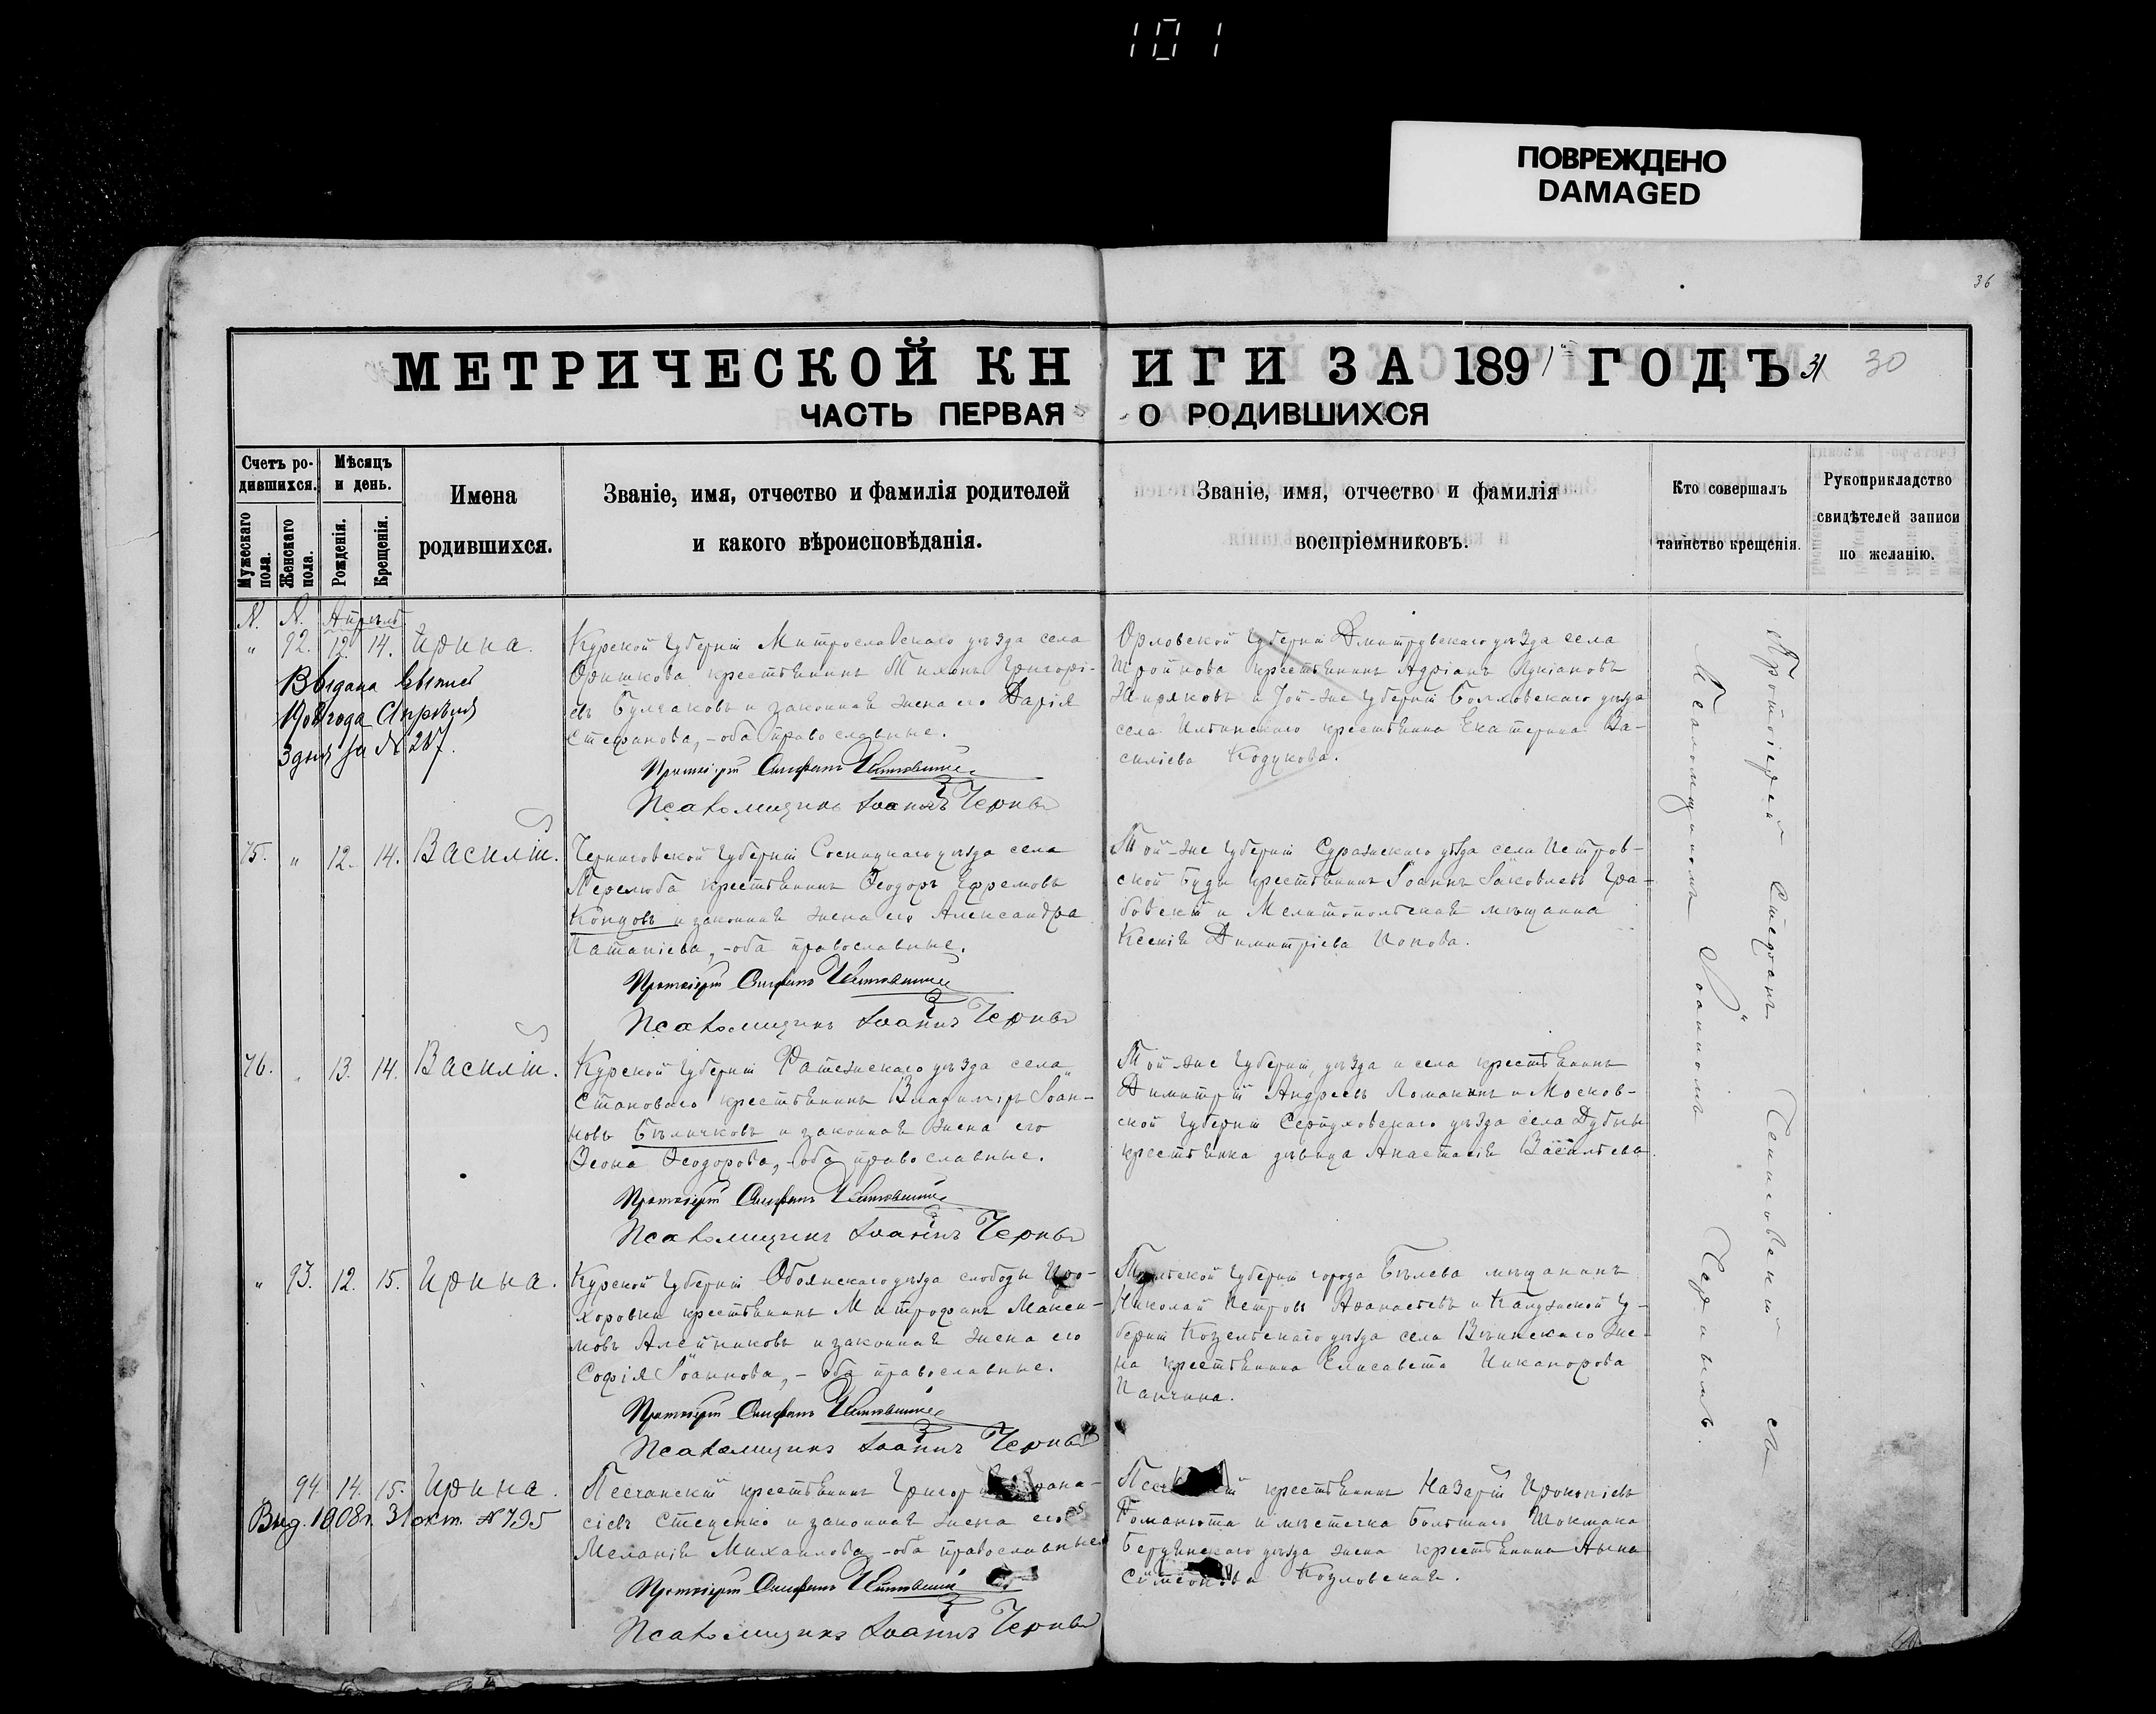 101
ПОВРЕЖДЕНО
DAMAGED
36
МЕТРИЧЕСКОЙ КНИГИ ЗА 1891 ГОДЪ 31 30
ЧАСТЬ ПЕРВАЯ О РОДИВШИХСЯ
Счетъ ро-
дившихся.
Мужескаго пола.
Женскаго пола.
Мѣсяцъ
и день.
Рожденія.
Крещенія.
Имена
родившихся.
Званіе, имя, отчество и фамилія родителей
и какого вѣроисповѣданія.
Званіе, имя, отчество и фамилія
воспріемниковъ.
Кто совершалъ
таинство крещенія.
Рукоприкладство
свидѣтелей записи
по желанію.
N. N. Апрѣль
" 92. 12. 14. Ирина.
Выдана
1908 года Апрѣля
3 дня за № 217.
Курской губерніи уѣзда села
крестьянинъ Тихонъ Григорі-
евъ Булгаковъ и законная жена его Дарія
Стефанова, - оба православные.
Протоіерей Стефанъ
Псаломщикъ Іоаннъ Черны
Орловской губерніи Дмитровскаго уѣзда села
крестьянинъ Адріанъ Лукіановъ
и той-же губерніи Болховскаго уѣзда
села Ильинскаго крестьянка Екатерина Ва-
силіева Кодукова.
75. " 12. 14. Василій.
Черниговской губерніи Сосницкаго уѣзда села
Перелюба крестьянинъ Ѳеодоръ Ефремовъ
Концовъ и законная жена его Александра
Патапіева, - оба православные.
Протоіерей Стефанъ
Псаломщикъ Іоаннъ Черны
Той-же губерніи Суражскаго уѣзда села Петров-
ской Буды крестьянинъ Іоаннъ Іаковлевъ Гра-
бовскій и Мелитопольская мѣщанка
Ксенія Димитріева Попова.
76. " 13. 14. Василій.
Курской губерніи Фатежскаго уѣзда села
Становаго крестьянинъ Владиміръ Іоан-
новъ Бѣличковъ и законная жена его
Ѳеодорова, - оба православные.
Протоіерей Стефанъ
Псаломщикъ Іоаннъ Черны
Той-же губерніи, уѣзда и села крестьянинъ
Димитрій Андреевъ Ломакинъ и Москов-
ской губерніи Серпуховскаго уѣзда села Дубны
крестьянка дѣвица Анастасія Васильева.
" 93. 12. 15. Ирина.
Курской губерніи Обоянскаго уѣзда слободы Про-
хоровки крестьянинъ Митрофанъ Макси-
мовъ Алейниковъ и законная жена его
Софія Іоаннова, - оба православные.
Протоіерей Стефанъ
Псаломщикъ Іоаннъ Черны
Тульской губерніи города Бѣлева мѣщанинъ
Николай Петровъ Аѳанасьевъ и Калужской гу-
берніи Козельскаго уѣзда села же-
на крестьянина Елисавета Никанорова
Панчина.
94. 14. 15. Ирина.
Выд. 1908 г. 31 окт. № 795
Песчанскій крестьянинъ Григорій
сіевъ Стеценко и законная жена его
Меланія Михаилова, - оба православные
Протоіерей Стефанъ
Псаломщикъ Іоаннъ Черны
крестьянинъ Назарій Прокопіевъ
Романюта и мѣстечка Большаго Токмака
Бердянскаго уѣзда жена крестьянина Анна
Симеонова Козловская.
Протоіерей Стефанъ съ
Псаломщикомъ Іоанномъ Чернымъ.